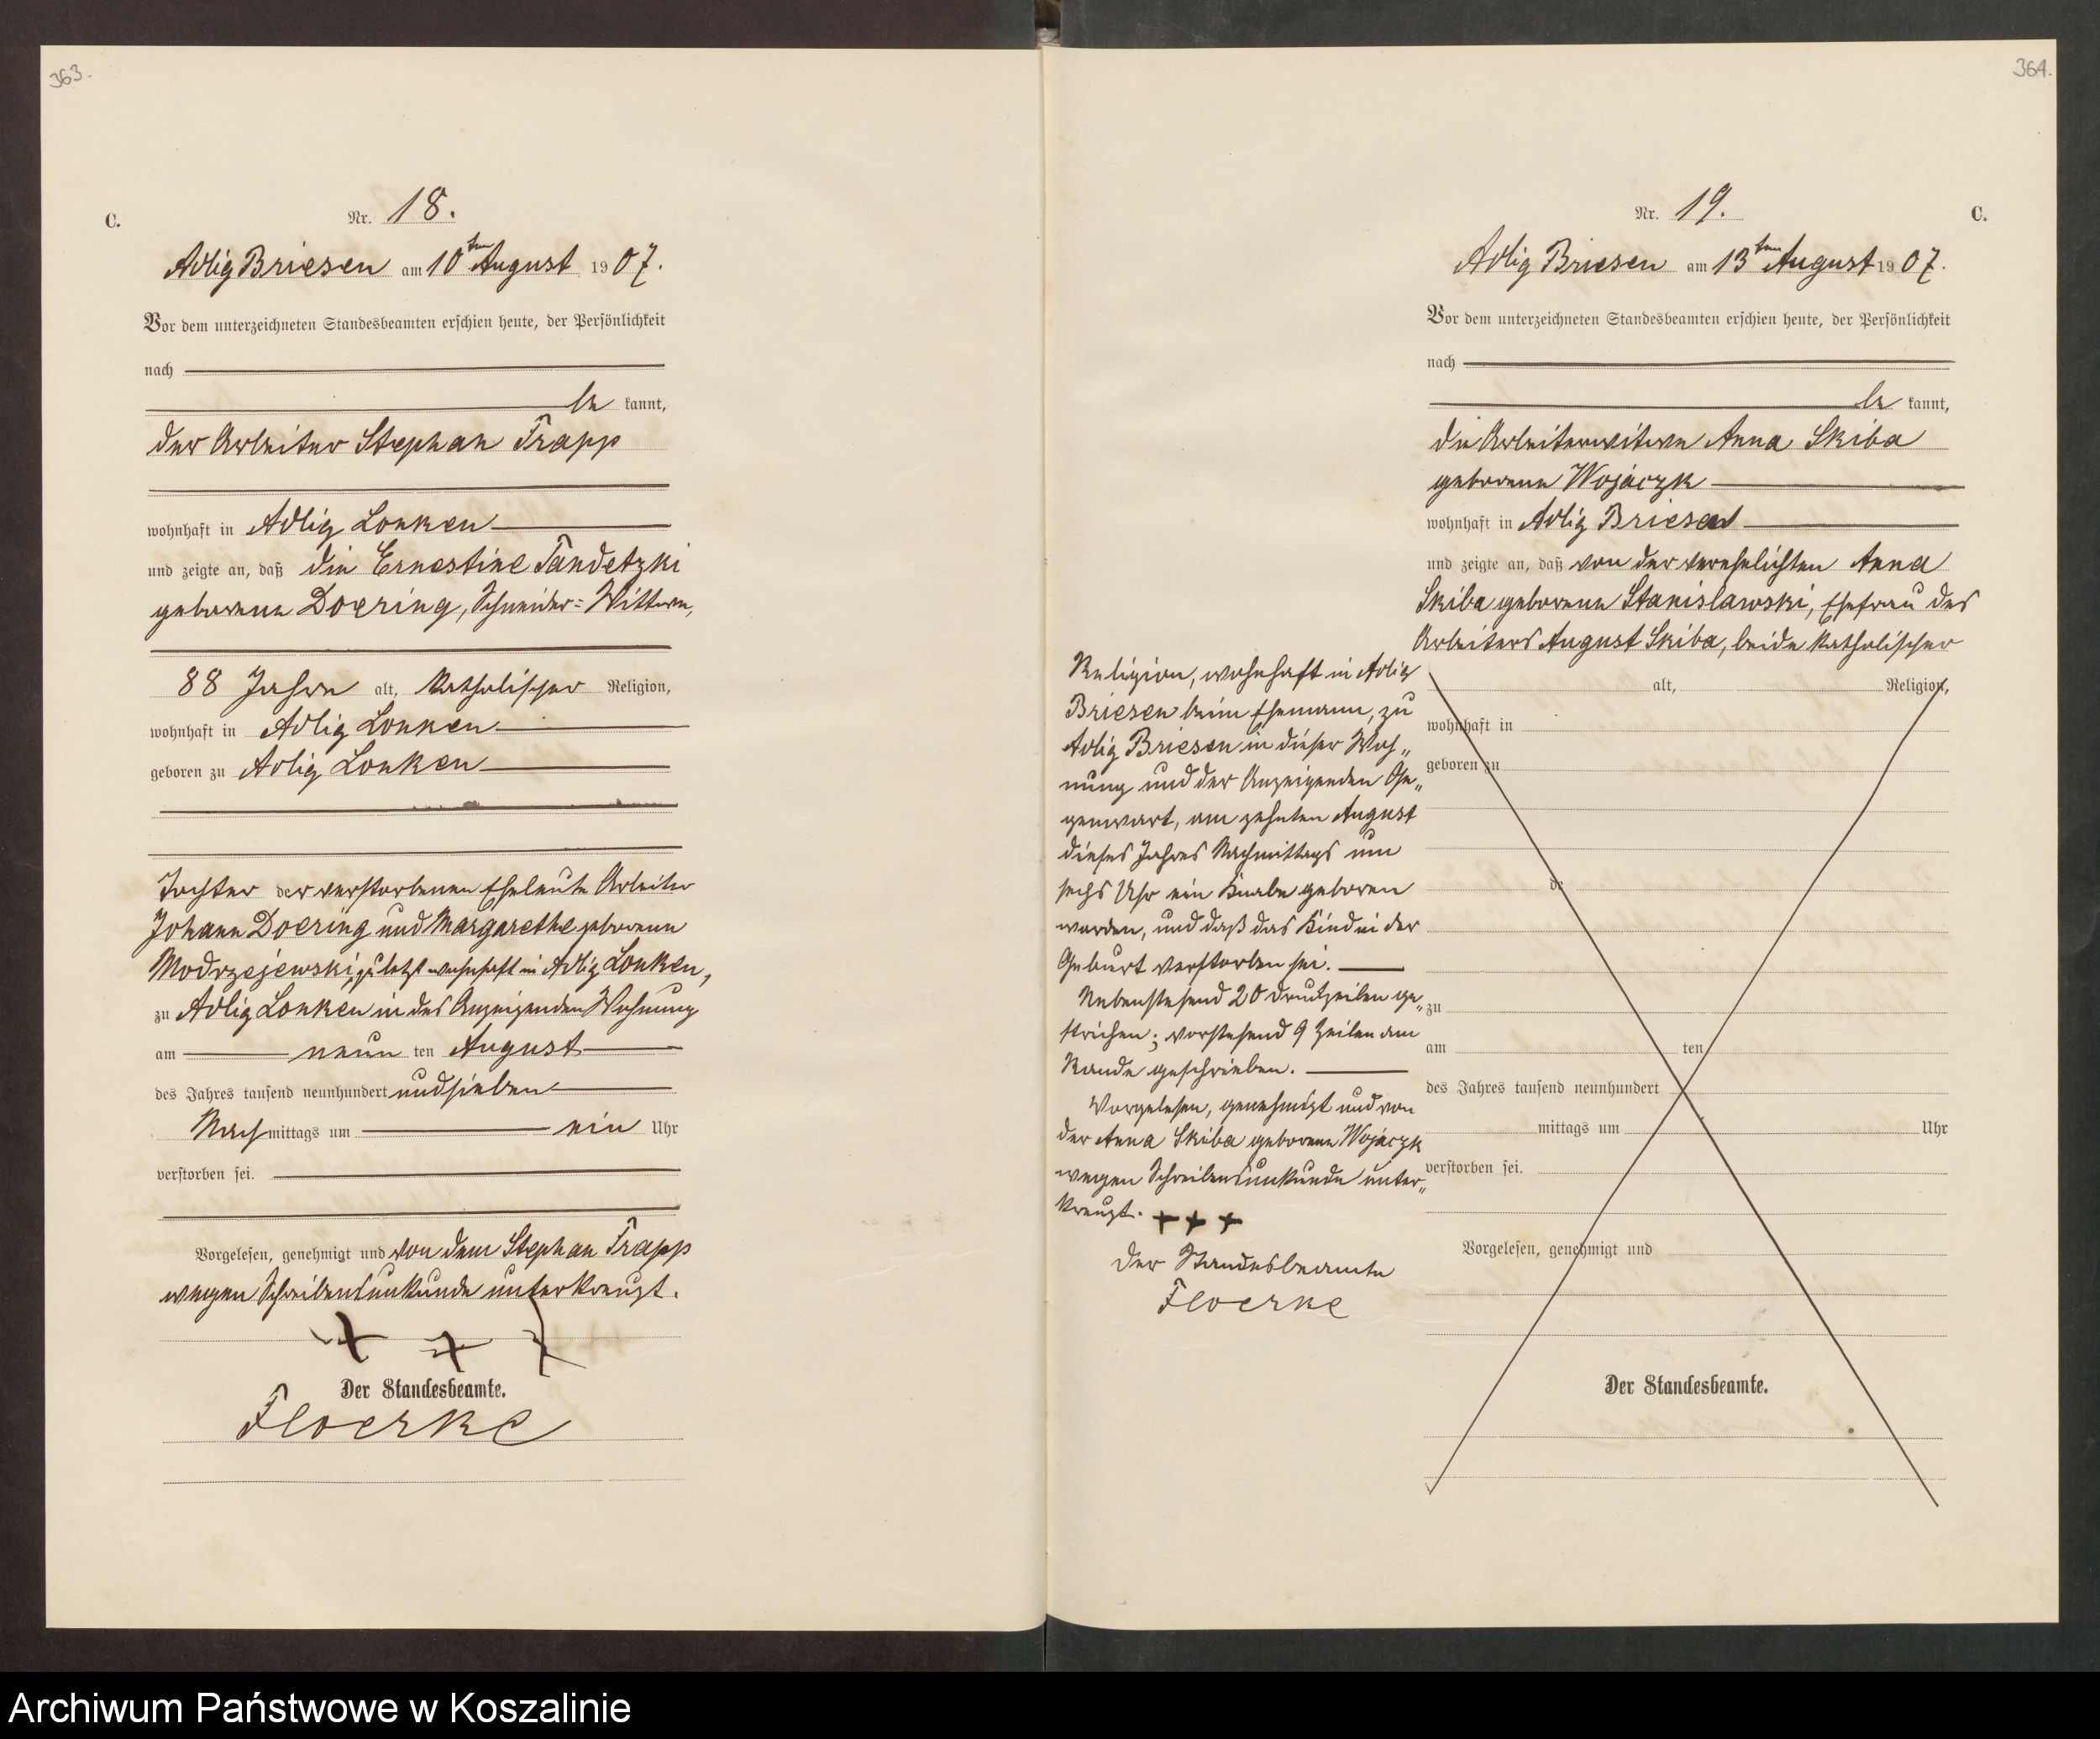 363.
C.
Nr. 18.
Adlig Briesen am 10ten August 1907.
Vor dem unterzeichneten Standesbeamten erschien heute, der Persönlichkeit
nach
be kannt,
der Arbeiter Stephan Trapp
wohnhaft in Adlig Lonken
und zeigte an, daß die Ernestine Tandetzki
geborene Doering, Schneider-Wittwe,
88 Jahre alt, katholischer Religion,
wohnhaft in Adlig Lonken
geboren zu Adlig Lonken
Tochter der verstorbenen Eheleute Arbeiter
Johann Doering und Margarethe geborene
Modrzejewski, zuletzt wohnhaft in Adlig Lonken,
zu Adlig Lonken in des Anzeigenden Wohnung
am neun ten August
des Jahres tausend neunhundert und sieben
Nachmittags um ein Uhr
verstorben sei.
Vorgelesen, genehmigt und von dem Stephan Trapp
wegen Schreibensunkunde unterkreuzt.
+ + +
Der Standesbeamte.
Floerke
364.
C.
Nr. 19.
Adlig Briesen am 13ten August 1907.
Vor dem unterzeichneten Standesbeamten erschien heute, der Persönlichkeit
nach
be kannt,
die Arbeiterwitwe Anna Skiba
geborene Wojáczk
wohnhaft in Adlig Briesen
und zeigte an, daß von der verehelichten Anna
Skiba geborene Stanislawski, Ehefrau des
Arbeiters August Skiba, beide katholischer
Religion, wohnhaft in Adlig
Briesen beim Ehemann, zu
Adlig Briesen in dieser Woh„
nung und der Anzeigenden Ge„
genwart, am zehnten August
dieses Jahres Nachmittags um
sechs Uhr ein Knabe geboren
worden, und daß das Kind in der
Geburt verstorben sei.
Nebenstehend 20 Druckzeilen ge„
strichen; vorstehend 9 Zeilen am
Rande geschrieben.
Vorgelesen, genehmigt und von
der Anna Skiba geborene Wojáczk
wegen Schreibensunkunde unter„
kreuzt. + + +
Der Standesbeamte
Floerke
alt, Religion,
wohnhaft in
geboren zu
de
zu
am ten
des Jahres tausend neunhundert
mittags um Uhr
verstorben sei.
Vorgelesen, genehmigt und
Der Standesbeamte.
Archiwum Państwowe w Koszalinie